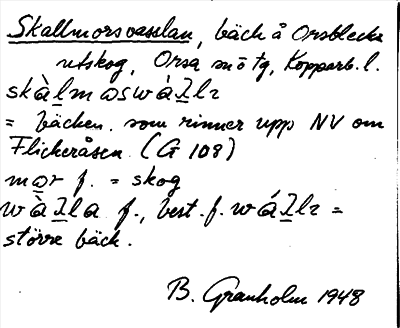 Skallmorsvasslan, bäck å Orsblecks
utskog, Orsa sn ö tg, Kopparb. l.
skàlmɷswàɮlɩ
= bäcken som rinner upp NV om
Flickeråsen (G 108)
mɷr f. = skog
wàɮla f., best. f. wáɮlɩ =
större bäck.
B. Granholm 1948